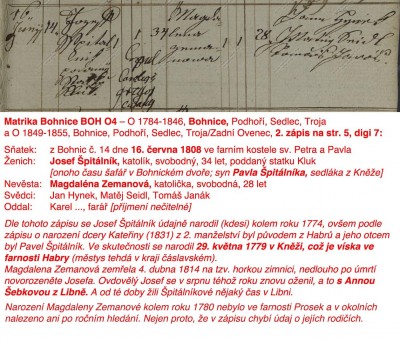 16 14. Josef 1 34 Magda 1 Jann Hynek
Juny Spital lena 28. Mathey Seidl
nik gema Thomas Janak
nowa
Matrika Bohnice BOH O4 – O 1784-1846, Bohnice, Podhoří, Sedlec, Troja
a O 1849-1855, Bohnice, Podhoří, Sedlec, Troja/Zadní Ovenec, 2. zápis na str. 5, digi 7:
Sňatek: z Bohnic č. 14 dne 16. června 1808 ve farním kostele sv. Petra a Pavla
Ženich: Josef Špitálník, katolík, svobodný, 34 let, poddaný statku Kluk
[onoho času šafář v Bohnickém dvoře; syn Pavla Špitálníka, sedláka z Kněže]
Nevěsta: Magdaléna Zemanová, katolička, svobodná, 28 let
Svědci: Jan Hynek, Matěj Seidl, Tomáš Janák
Oddal: Karel ..., farář [příjmení nečitelné]
Dle tohoto zápisu se Josef Špitálník údajně narodil (kdesi) kolem roku 1774, ovšem podle
zápisu o narození dcery Kateřiny (1831) z 2. manželství byl původem z Habrů a jeho otcem
byl Pavel Špitálník. Ve skutečnosti se narodil 29. května 1779 v Kněži, což je víska ve
farnosti Habry (městys tehdá v kraji čáslavském).
Magdalena Zemanová zemřela 4. dubna 1814 na tzv. horkou zimnici, nedlouho po úmrtí
novorozeně Josefa. Ovdovělý Josef se v srpnu téhož roku znovu oženil, a to s Annou
Šebkovou z Libně. A od té doby žili Špitálníkové nějaký čas v Libni.
Narození Magdaleny Zemanové kolem roku 1780 nebylo ve farnosti Prosek a v okolních
nalezeno ani po ročním hledání. Nejen proto, že v zápisu chybí údaj o jejích rodičích.